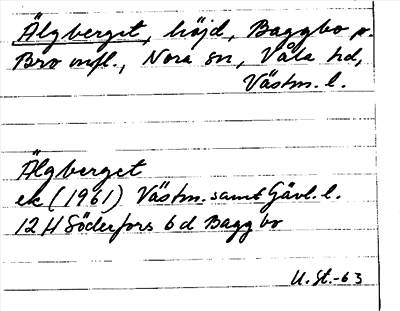 Älgberget, höjd, Baggbo p.
Bro mfl., Nora sn, Våla hd,
Västm. l.
Älgberget
ek (1961) Västm. samt Gävl. l.
12 H Söderfors 6 d Baggbo
U. St. -63